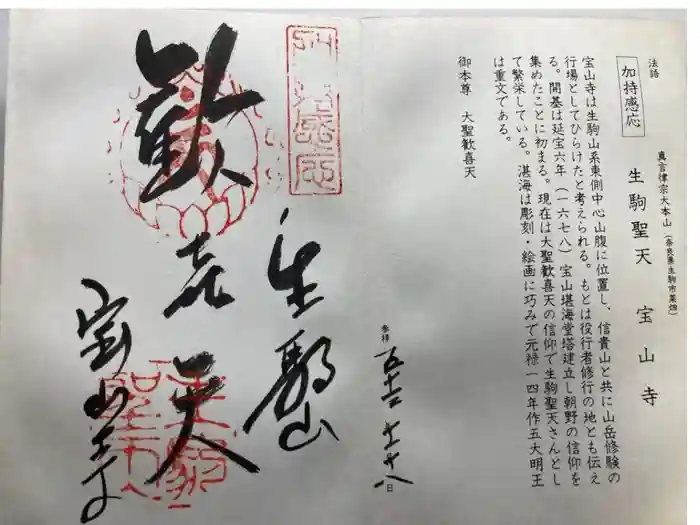 法話
加持感応
真言律宗大本山(奈良県生駒市菜畑)
生駒聖天 宝山寺
宝山寺は生駒山系東側中心山腹に位置し、信貴山と共に山岳修験の
行場としてひらけたと考えられる。もとは役行者修行の地とも伝え
る。開基は延宝六年(一六七八)宝山堪海堂塔建立し朝野の信仰を
集めたことに初まる。現在は大聖歓喜天の信仰で生駒聖天さんとし
て繁栄している。湛海は彫刻・絵画に巧みで元禄一四年作五大明王
は重文である。
御本尊 大聖歓喜天
参拝
日
加持感応
生駒山
歓喜天
生駒聖天
宝山寺